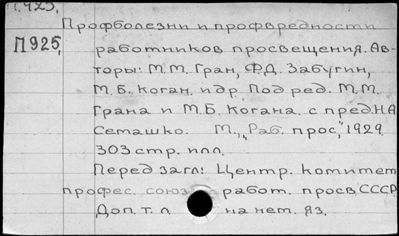 1.423.
Профболезни и профвредности
П925, работников просвещения. Ав-
торы: М.М. Гран, Ф.Д. Забугин,
М.Б. Коган. и др. Под ред. М.М.
Грана и М.Б. Когана. с пред. Н.А
Семашко. М., „Раб. прос", 1929
303 стр. илл.
Перед загл: Центр. комитет
профес. союз работ. просв. СССР.
Доп. т. л на нет. яз.